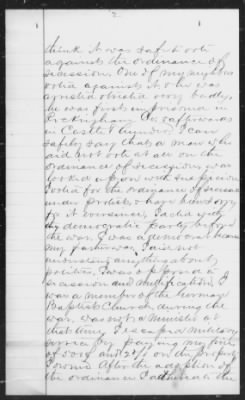 2
think it was safe to vote
against the ordinance of
secession. One of my neighbors
voted against it & he was
arrested & treated very badly,
he was first imprisoned in
Rockingham Co & afterwards
in Castle Thunder. I can
safely say that a man who
did not vote at all on the
ordinance of secession was
looked upon with suspicion.
I voted for the ordinance of secession
under protest & have been sorry
for it ever since. I acted with
the democratic party before
the war. I was a democrat because
my father was, I did not
understand anything about
politics, I was opposed to
secession and nullification, I
was a member of the German
Baptist Church during the
war, was not a minister at
that time, I escaped military
service by paying my fine
of 500$ and 2% on the property
I owned. After the adoption of
the ordinance I adhered to the